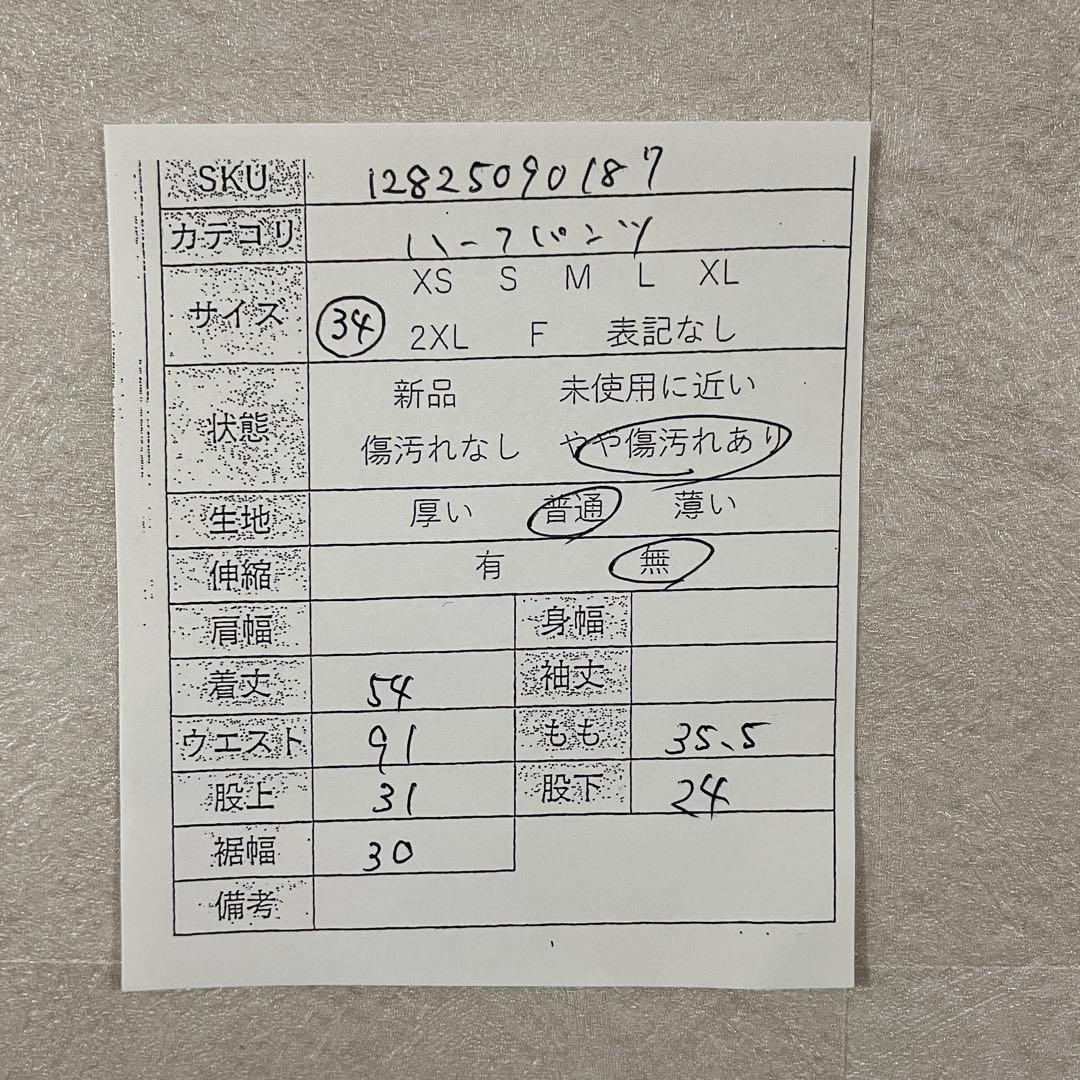 SKU 12825090187
カテゴリ ハーフパンツ
XS S M L XL
サイズ 34 2XL F 表記なし
新品 未使用に近い
状態
傷汚れなし やや傷汚れあり
生地 厚い 普通 薄い
伸縮 有 無
肩幅 身幅
着丈 54 袖丈
ウエスト 91 もも 35.5
股上 31 股下 24
裾幅 30
備考